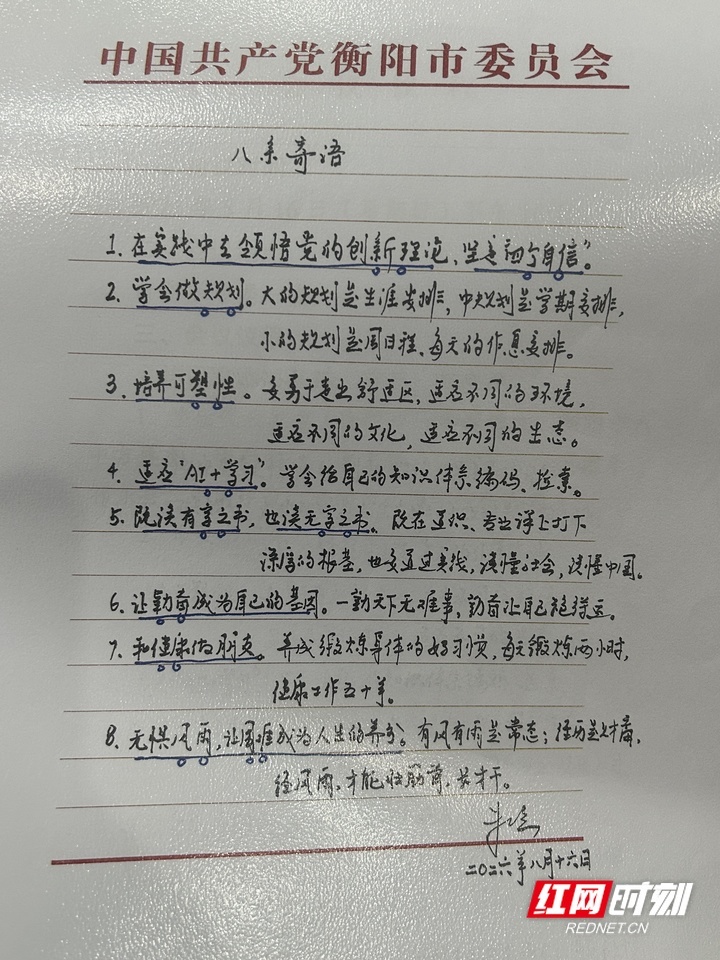 中国共产党衡阳市委员会
八条寄语
1. 在实践中去领悟党的创新理论、坚定“四个自信”。
2. 学会做规划。大的规划是生涯安排、中规划是学期安排、
小的规划是周日程、每天的作息安排。
3. 培养可塑性。要勇于走出舒适区，适应不同的环境，
适应不同的文化，适应不同的生态。
4. 适应“AI+学习”。学会给自己的知识体系编码、检索。
5. 既读有字之书，也读无字之书。既在通识、专业课上打下
深厚的根基，也要通过实践，读懂社会，读懂中国。
6. 让勤奋成为自己的基因。一勤天下无难事，勤奋让自己
7. 和健康做朋友。养成锻炼身体的好习惯，每天锻炼两小时，
健康工作五十年。
8. 无惧风雨，让困难成为人生的养分。有风有雨是常态；经历是财富，
经风雨，才能壮筋骨、长才干。
二〇二六年八月十六日
红网时刻
REDNET.CN